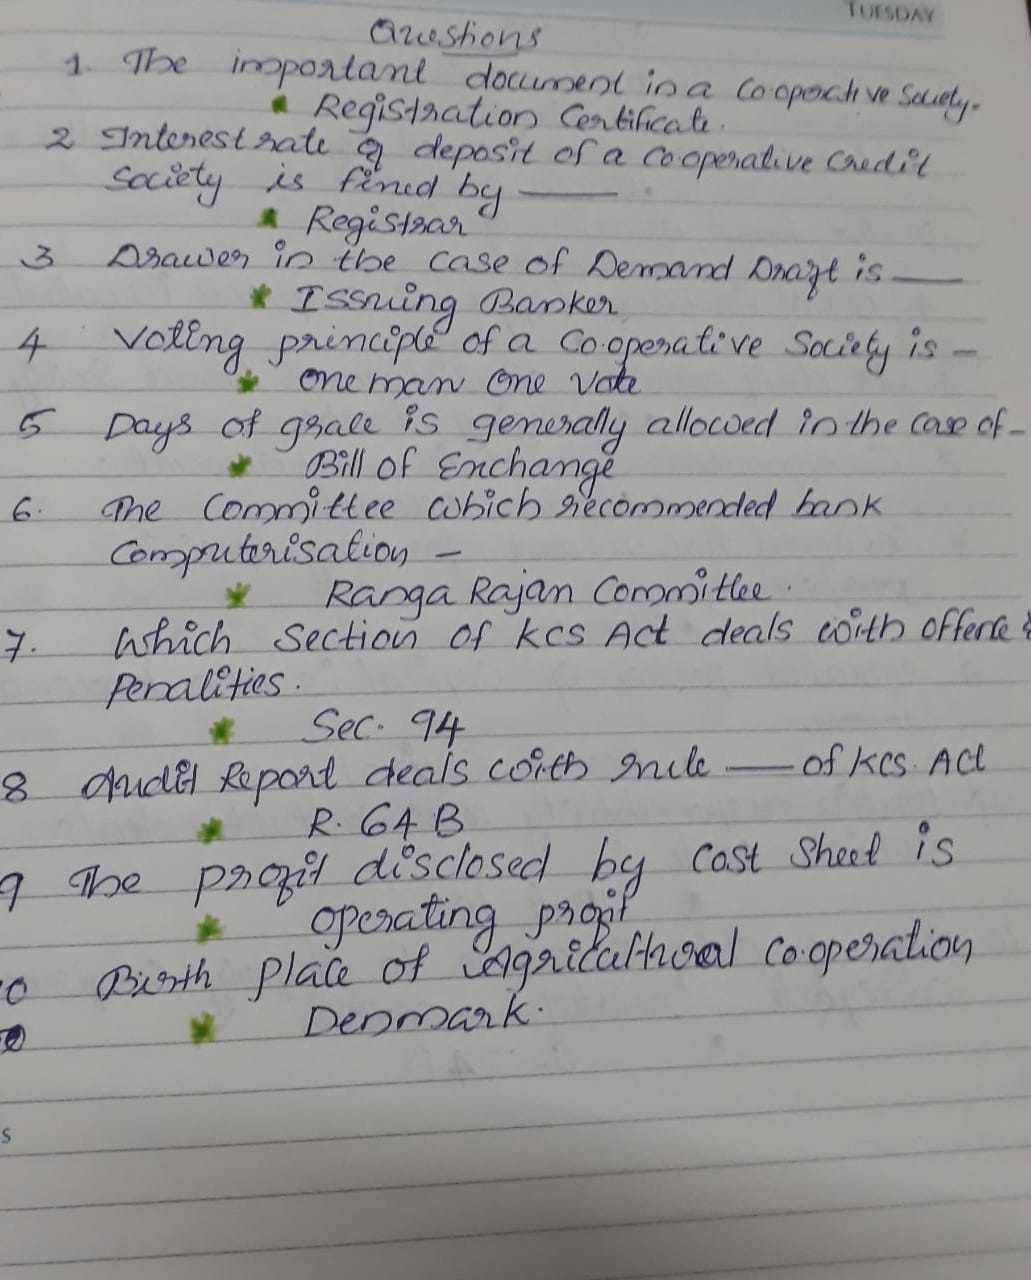 TUESDAY
Questions
1. The important document in a Co.operative Society.
Registration Certificate.
2 Interest rate of deposit of a Cooperative Credit
Society is fined by ——
Registrar
3 Drawer in the case of Demand Draft is ——
Issuing Banker
4 Voting principle of a Co.operative Society is –
One man One Vote
5 Days of grace is generally allowed in the case of –
Bill of Exchange
6. The Committee which recommended bank
Computerisation –
Ranga Rajan Committee.
7. Which Section of KCS Act deals with offence &
Penalities.
Sec. 94
8 Audit Report deals with rule —— of KCS. Act
R. 64 B
9 The profit disclosed by Cost Sheet is
Operating profit
10 Birth place of Agricultural Co.operation
Denmark.
S